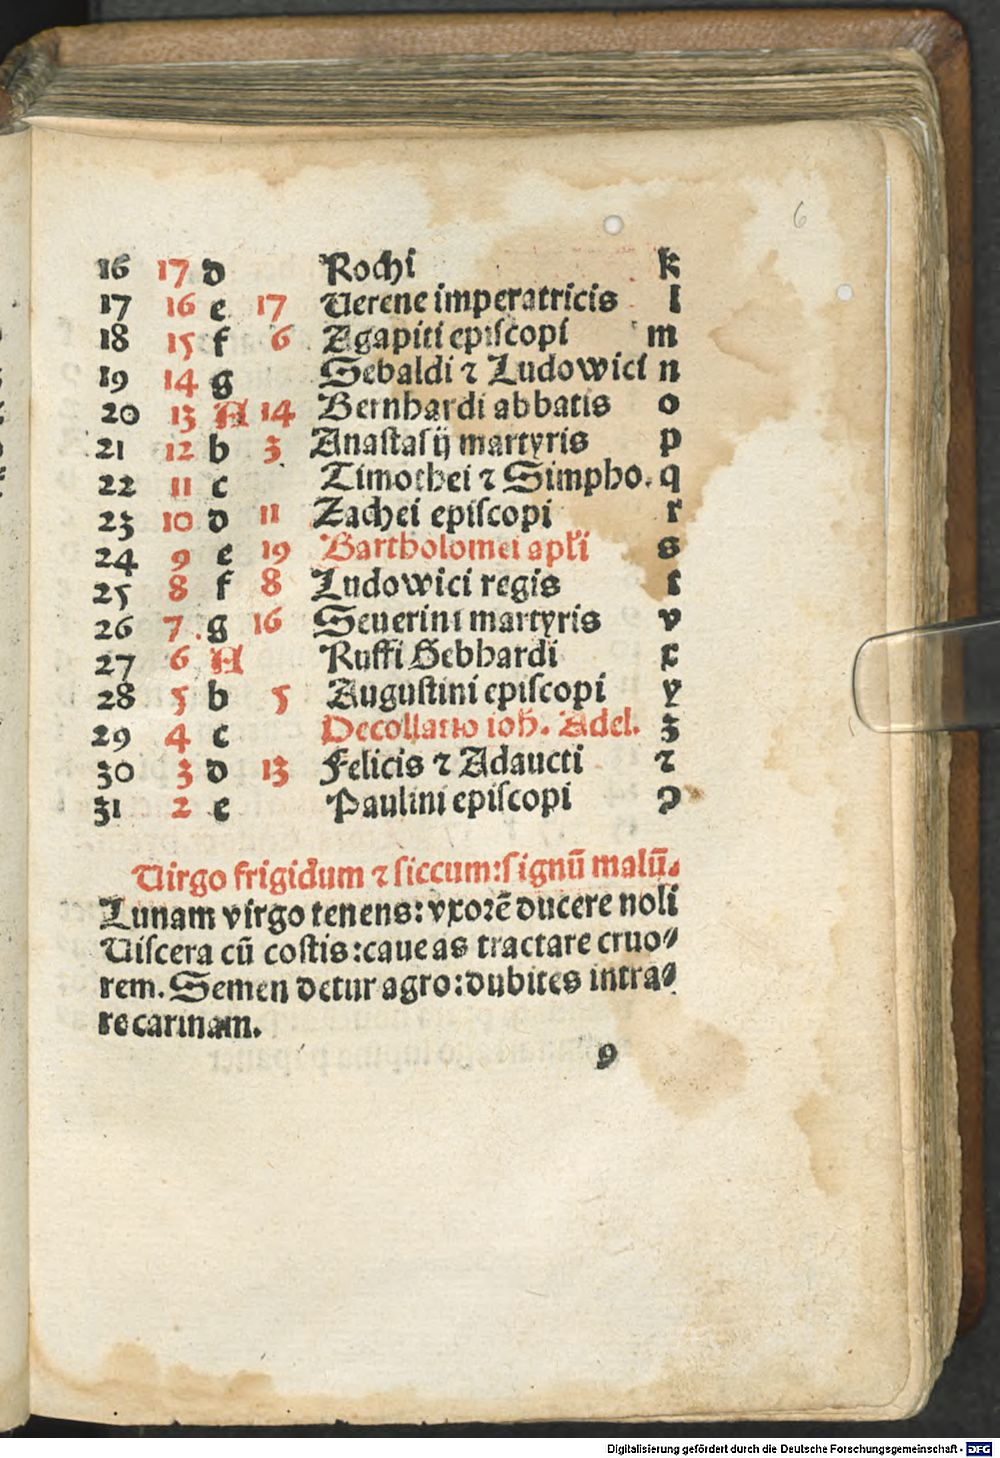 6
16 17 d Rochi k
17 16 e 17 Uerene imperatricis l
18 15 f 6 Agapiti episcopi m
19 14 g Sebaldi ⁊ Ludowici n
20 13 A 14 Bernhardi abbatis o
21 12 b 3 Anastasij martyris p
22 11 c Timothei ⁊ Simpho. q
23 10 d 11 Zachei episcopi r
24 9 e 19 Bartholomei apl̃i s
25 8 f 8 Ludowici regis t
26 7 g 16 Seuerini martyris v
27 6 A Ruffi Gebhardi x
28 5 b 5 Augustini episcopi y
29 4 c Decollatio ioh̃. Adel. z
30 3 d 13 Felicis ⁊ Adaucti ⁊
31 2 e Paulini episcopi ꝯ
Uirgo frigidum ⁊ siccum:signū malū.
Lunam virgo tenens: vxorē ducere noli
Uiscera cū costis:caueas tractare cruo⸗
rem. Semen detur agro:dubites intra⸗
re carinam.
9
Digitalisierung gefördert durch die Deutsche Forschungsgemeinschaft - DFG